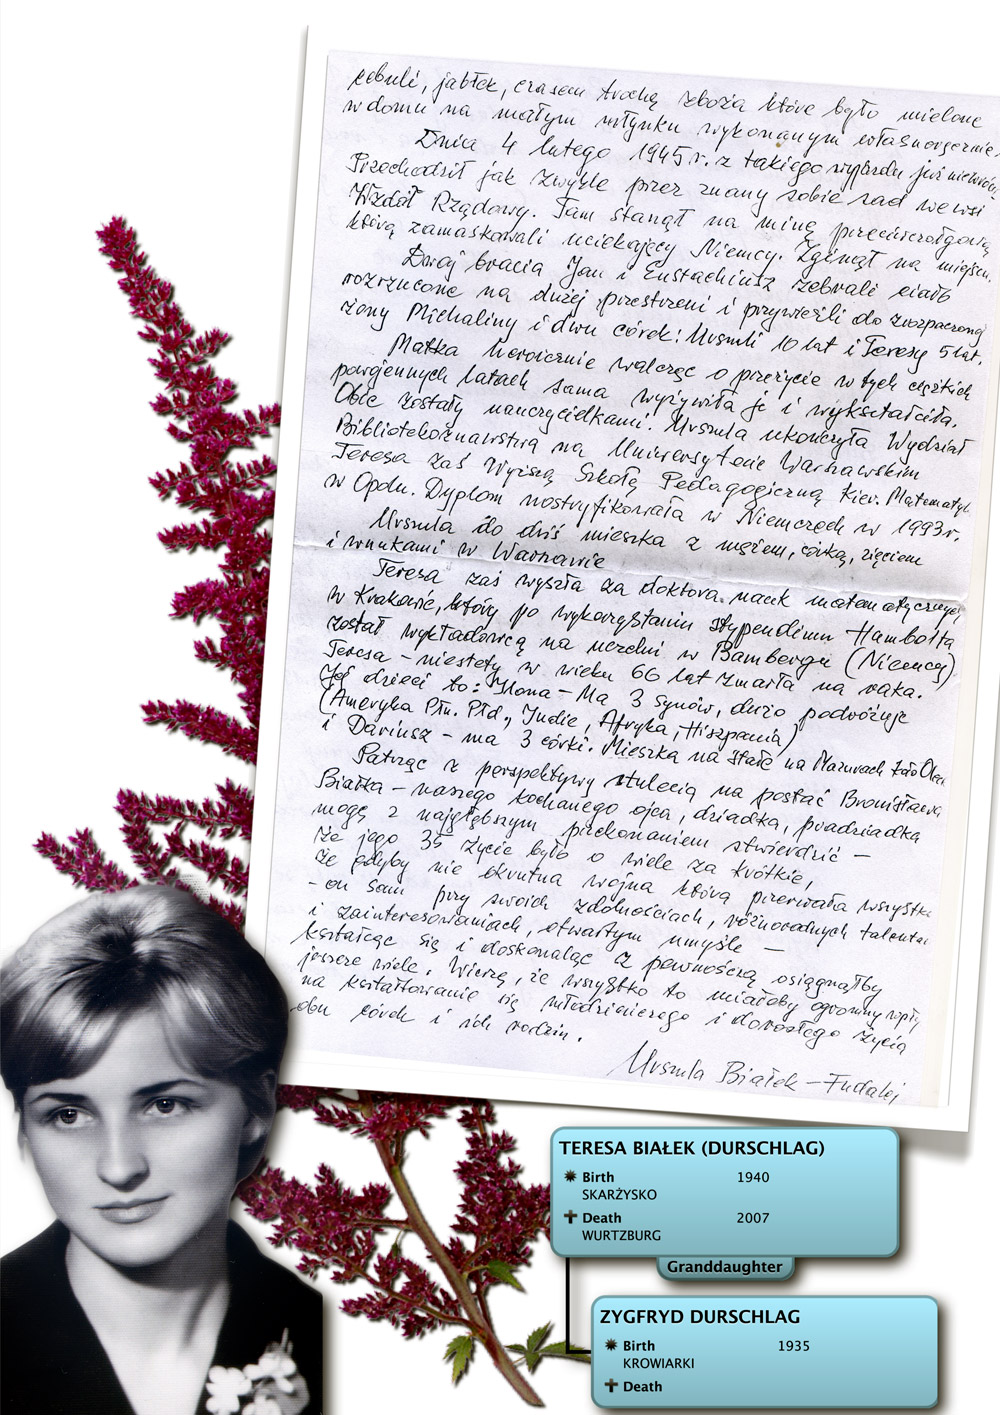 cebuli, jabłek, czasem trochę zboża które było mielone
w domu na małym młynku wykonanym własnoręcznie.
Dnia 4 lutego 1945 r. z takiego wyjazdu już nie wrócił
Przechodził jak zwykle przez znany sobie sad we wsi
Wzdół Rządowy. Tam stanął na minę przeciwczołgową
którą zamaskowali uciekający Niemcy. Zginął na miejscu.
Dwaj bracia Jan i Eustachiusz zebrali ciało
rozrzucone na dużej przestrzeni i przywieźli do zrozpaczonej
żony Michaliny i dwu córek: Urszuli 10 lat i Teresy 5 lat.
Matka heroicznie walcząc o przeżycie w tych ciężkich
powojennych latach sama wyżywiła je i wykształciła.
Obie zostały nauczycielkami. Urszula ukończyła Wydział
Bibliotekoznawstwa na Uniwersytecie Warszawskim
Teresa zaś Wyższą Szkołę Pedagogiczną kier. Matematyk
w Opolu. Dyplom nostryfikowała w Niemczech w 1993 r.
Urszula do dziś mieszka z mężem, córką, zięciem
i wnukami w Warszawie
Teresa zaś wyszła za doktora nauk matematycznych
w Krakowie, który po wykorzystaniu stypendium Hambolta
został wykładowcą na uczelni w Bambergu (Niemcy)
Teresa – niestety w wieku 66 lat zmarła na raka.
Jej dzieci to: Ilona – Ma 3 synów, dużo podróżuje
(Ameryka Płn. Płd., Indie, Afryka, Hiszpania)
i Dariusz – ma 3 córki. Mieszka na stałe na Mazurach koło
Patrząc z perspektywy stulecia na postać Bronisława
Białka – naszego kochanego ojca, dziadka, pradziadka
mogę z najgłębszym przekonaniem stwierdzić –
że jego 35 życie było o wiele za krótkie,
że gdyby nie okrutna wojna która przerwała wszystko
– on sam przy swoich zdolnościach, różnorodnych talentach
i zainteresowaniach, otwartym umyśle –
kształcąc się i doskonaląc z pewnością osiągnąłby
jeszcze wiele. Wierzę, że wszystko to miałoby ogromny wpływ
na kształtowanie się młodzieńczego i dorosłego życia
obu córek i ich rodzin.
Urszula Białek – Fudalej
TERESA BIAŁEK (DURSCHLAG)
Birth 1940
SKARŻYSKO
Death 2007
WURTZBURG
Granddaughter
ZYGFRYD DURSCHLAG
Birth 1935
KROWIARKI
Death